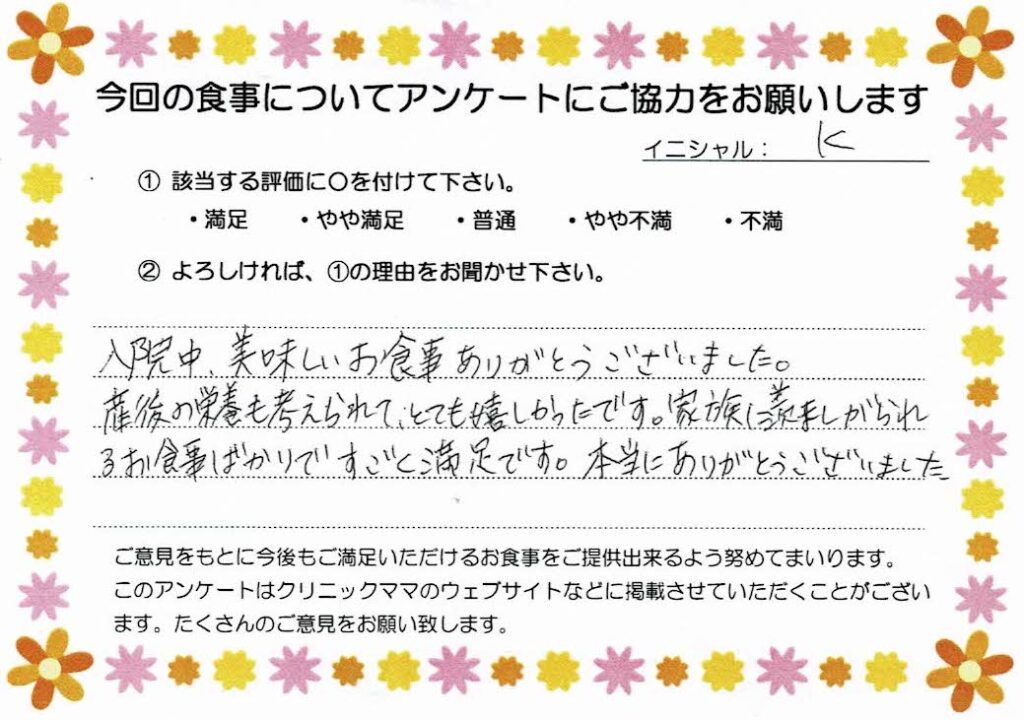 今回の食事についてアンケートにご協力をお願いします
イニシャル： K
① 該当する評価に○を付けて下さい。
・満足 ・やや満足 ・普通 ・やや不満 ・不満
② よろしければ、①の理由をお聞かせ下さい。
入院中、美味しいお食事ありがとうございました。
産後の栄養も考えられて、とても嬉しかったです。家族に羨ましがられ
るお食事ばかりですごく満足です。本当にありがとうございました
ご意見をもとに今後もご満足いただけるお食事をご提供出来るよう努めてまいります。
このアンケートはクリニックママのウェブサイトなどに掲載させていただくことがござい
ます。たくさんのご意見をお願い致します。